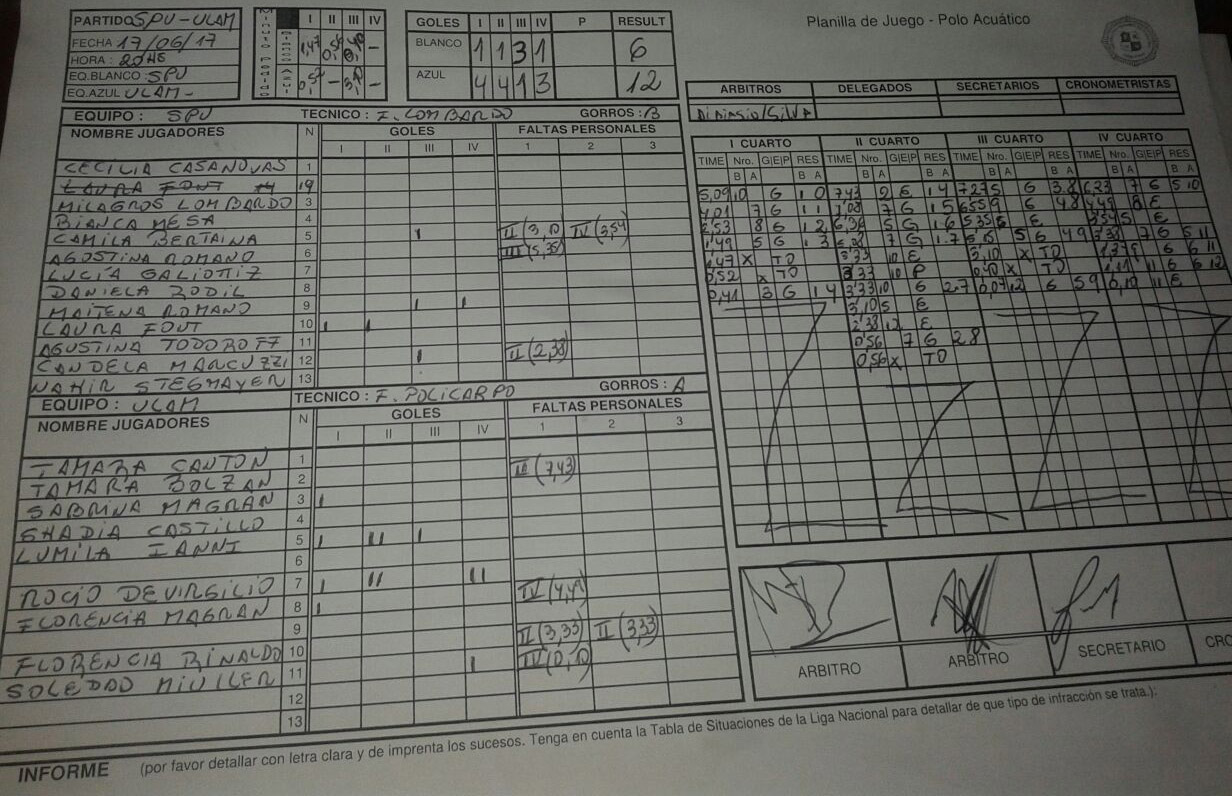 PARTIDO SPU - ULAM
FECHA 17/06/17
HORA: 2045
EQ.BLANCO: SPU
EQ.AZUL ULAM-
I II III IV
GOLES I II III IV P RESULT
BLANCO 1 1 3 1 6
AZUL 4 4 1 3 12
Planilla de Juego - Polo Acuático
ARBITROS DELEGADOS SECRETARIOS CRONOMETRISTAS
EQUIPO: SPU TECNICO: F. LOMBARDO GORROS: B
NOMBRE JUGADORES N GOLES FALTAS PERSONALES
I II III IV 1 2 3
CECILIA CASANOVAS 1
MILAGROS LOMBARDO 3
BIANCA MESA 4
CAMILA BERTAINA 5 I II (3,10) IV (3,54)
AGOSTINA ROMANO 6 III (5,35)
LUCÍA GALIOTIZ 7
DANIELA RODIL 8
MAITENA ROMANO 9 I I
LAURA FONT 10 I I
AGUSTINA TODOROFF 11
CANDELA MARCUZZI 12 I II (2,38)
NAHIR STEGMAYER 13
EQUIPO: ULAM TECNICO: F. POLICARPO GORROS: A
NOMBRE JUGADORES N GOLES FALTAS PERSONALES
I II III IV 1 2 3
TAMARA CANTON 1
TAMARA BOLZAN 2 II (7,43)
SABRINA MAGRAN 3 I
SHADIA CASTILLO 4
LUMILA IANNI 5 I II I
6
ROCIO DEVIRGILIO 7 I II II IV (4,49)
FLORENCIA MAGRAN 8 I
9
FLORENCIA RINALDO 10 II (3,33) II (3,33)
SOLEDAD MIULLER 11 I IV (0,10)
12
13
I CUARTO II CUARTO III CUARTO IV CUARTO
TIME Nro. G|E|P RES TIME Nro. G|E|P RES TIME Nro. G|E|P RES TIME Nro. G|E|P RES
B A B A B A B A B A B A B A B A
5,09 10 G 1 0 7,43 2 E 1 4 7,27 5 G 3.8 6,23 7 G 5 10
4,01 7 G 1 1 7 G 1 5 6,55 9 G 4 8 4,49 8 E
2,53 8 G 1 2 6,36 5 G 1 6 5,35 6 E 3,54 5 E
1,49 5 G 1 3 7 G 1.7 5 G 4 9 3,38 7 G 5 11
1,47 X TO 3,33 10 E 5,10 X TO 9 G 6 11
0,52 X TO 3,33 10 P 0,40 X TO 1,11 11 G 6 12
0,41 3 G 1 4 3,33 10 G 2.7 0,07 12 G 5 9 0,10 11 E
3,10 5 E
2,38 12 E
0,56 7 G 2 8
0,56 X TO
ARBITRO
ARBITRO
SECRETARIO
CRO
INFORME (por favor detallar con letra clara y de imprenta los sucesos. Tenga en cuenta la Tabla de Situaciones de la Liga Nacional para detallar de que tipo de infracción se trata.):